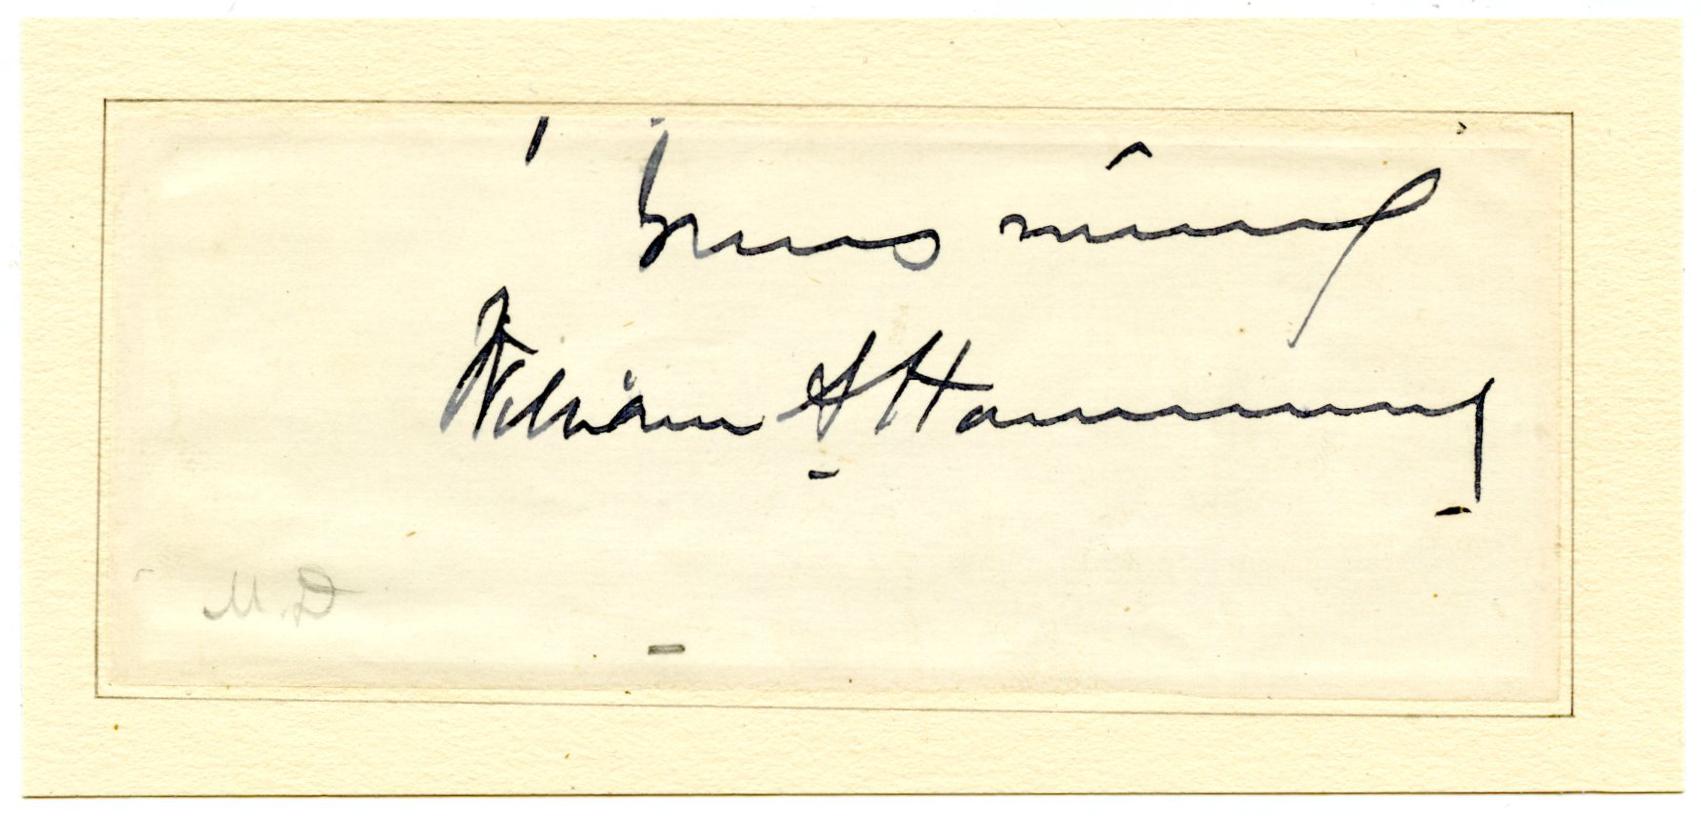 Yours sincerely
William A Hammond
M.D